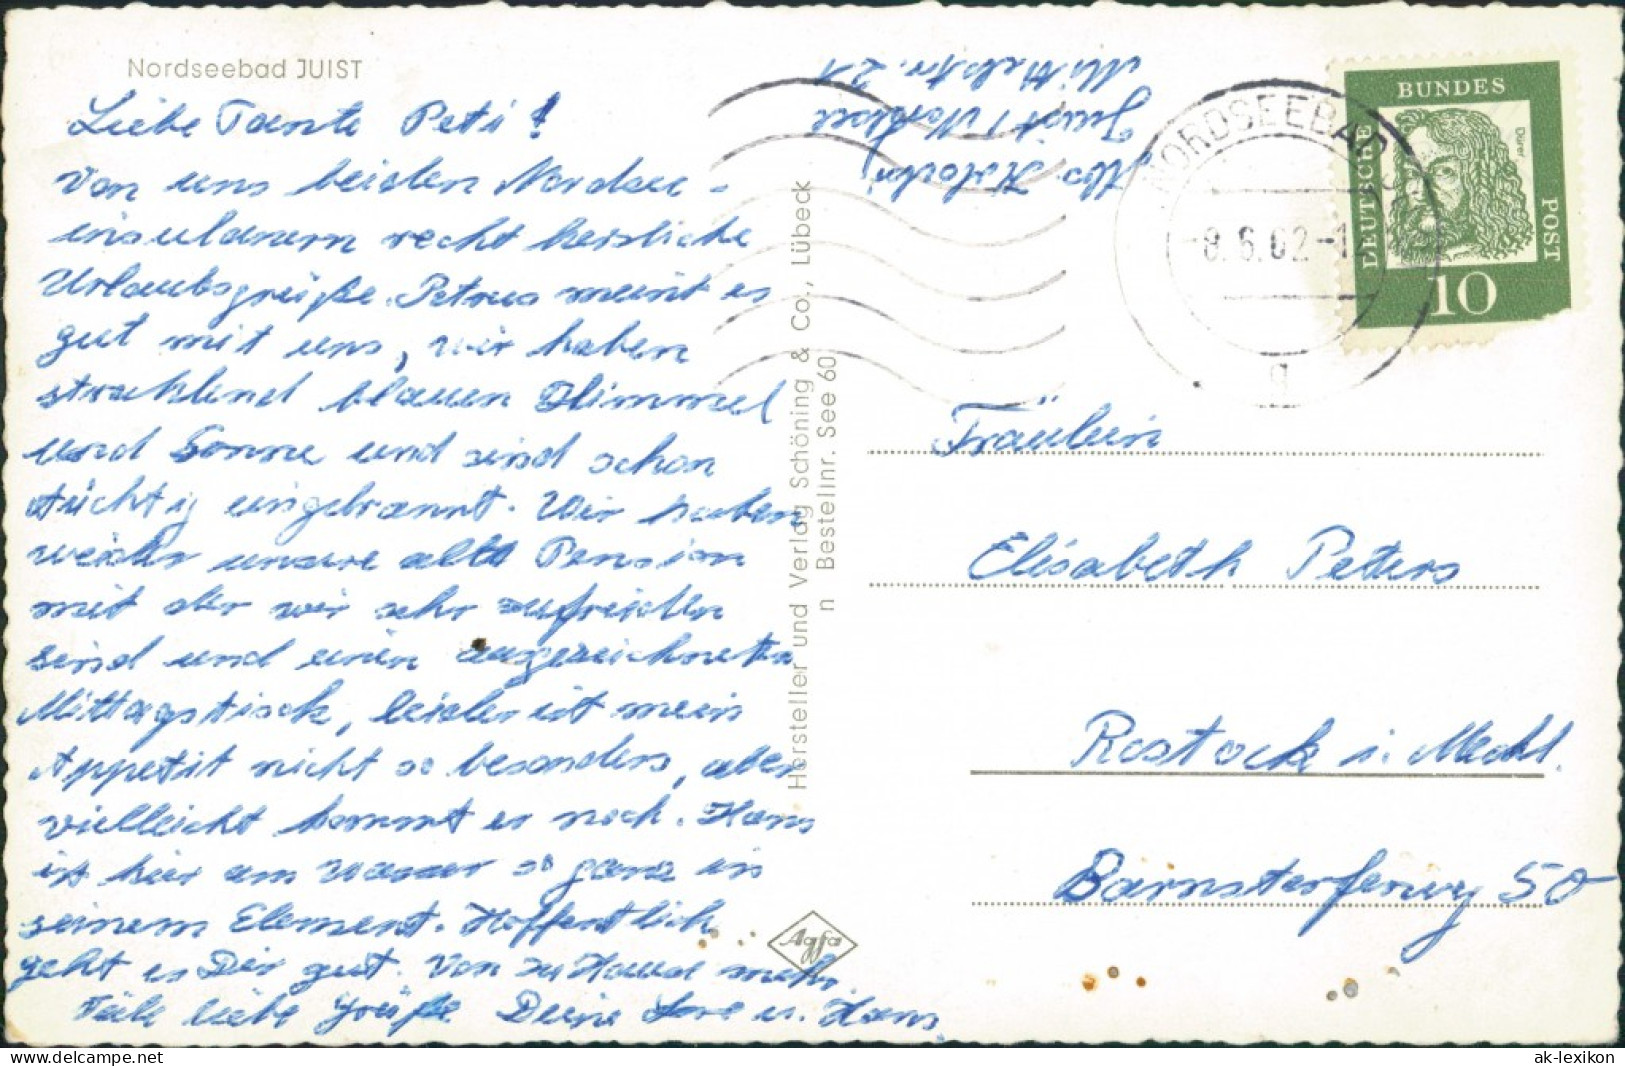 Nordseebad JUIST
Liebe Tante Peti!
Von uns beiden Nordsee-
insulanern recht herzliche
Urlaubsgrüße. Petrus meint es
gut mit uns, wir haben
strahlend blauen Himmel
und Sonne und sind schon
tüchtig eingebrannt. Wir haben
wieder unsere alte Pension
mit der wir sehr zufrieden
sind und einen ausgezeichneten
Mittagstisch, leider ist mein
Appetit nicht so besonders, aber
vielleicht kommt er noch. Hans
ist hier am Wasser so ganz in
seinem Element. Hoffentlich
geht es Dir gut. Von zu Hause mehr.
Viele liebe Grüße Deine Lore u. Hans
Hersteller und Verlag Schöning & Co., Lübeck
n Bestellnr. See 60
Agfa
Abs.
Juist / Nordsee
Mittelstr. 21
NORDSEEBAD JUIST
-8.6.62-1
a
DEUTSCHE BUNDES POST
Dürer
10
Fräulein
Elisabeth Peters
Rostock i. Meckl.
Barnstorferweg 50
www.delcampe.net
ak-lexikon